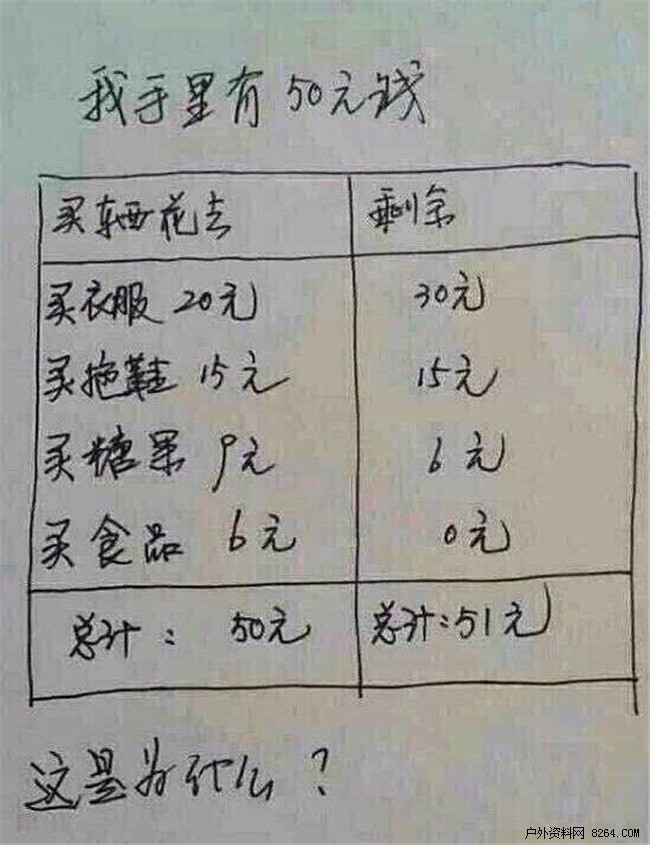 我手里有50元钱
买东西花去 剩余
买衣服 20元 30元
买拖鞋 15元 15元
买糖果 9元 6元
买食品 6元 0元
总计： 50元 总计：51元
这是为什么？
户外资料网 8264.com